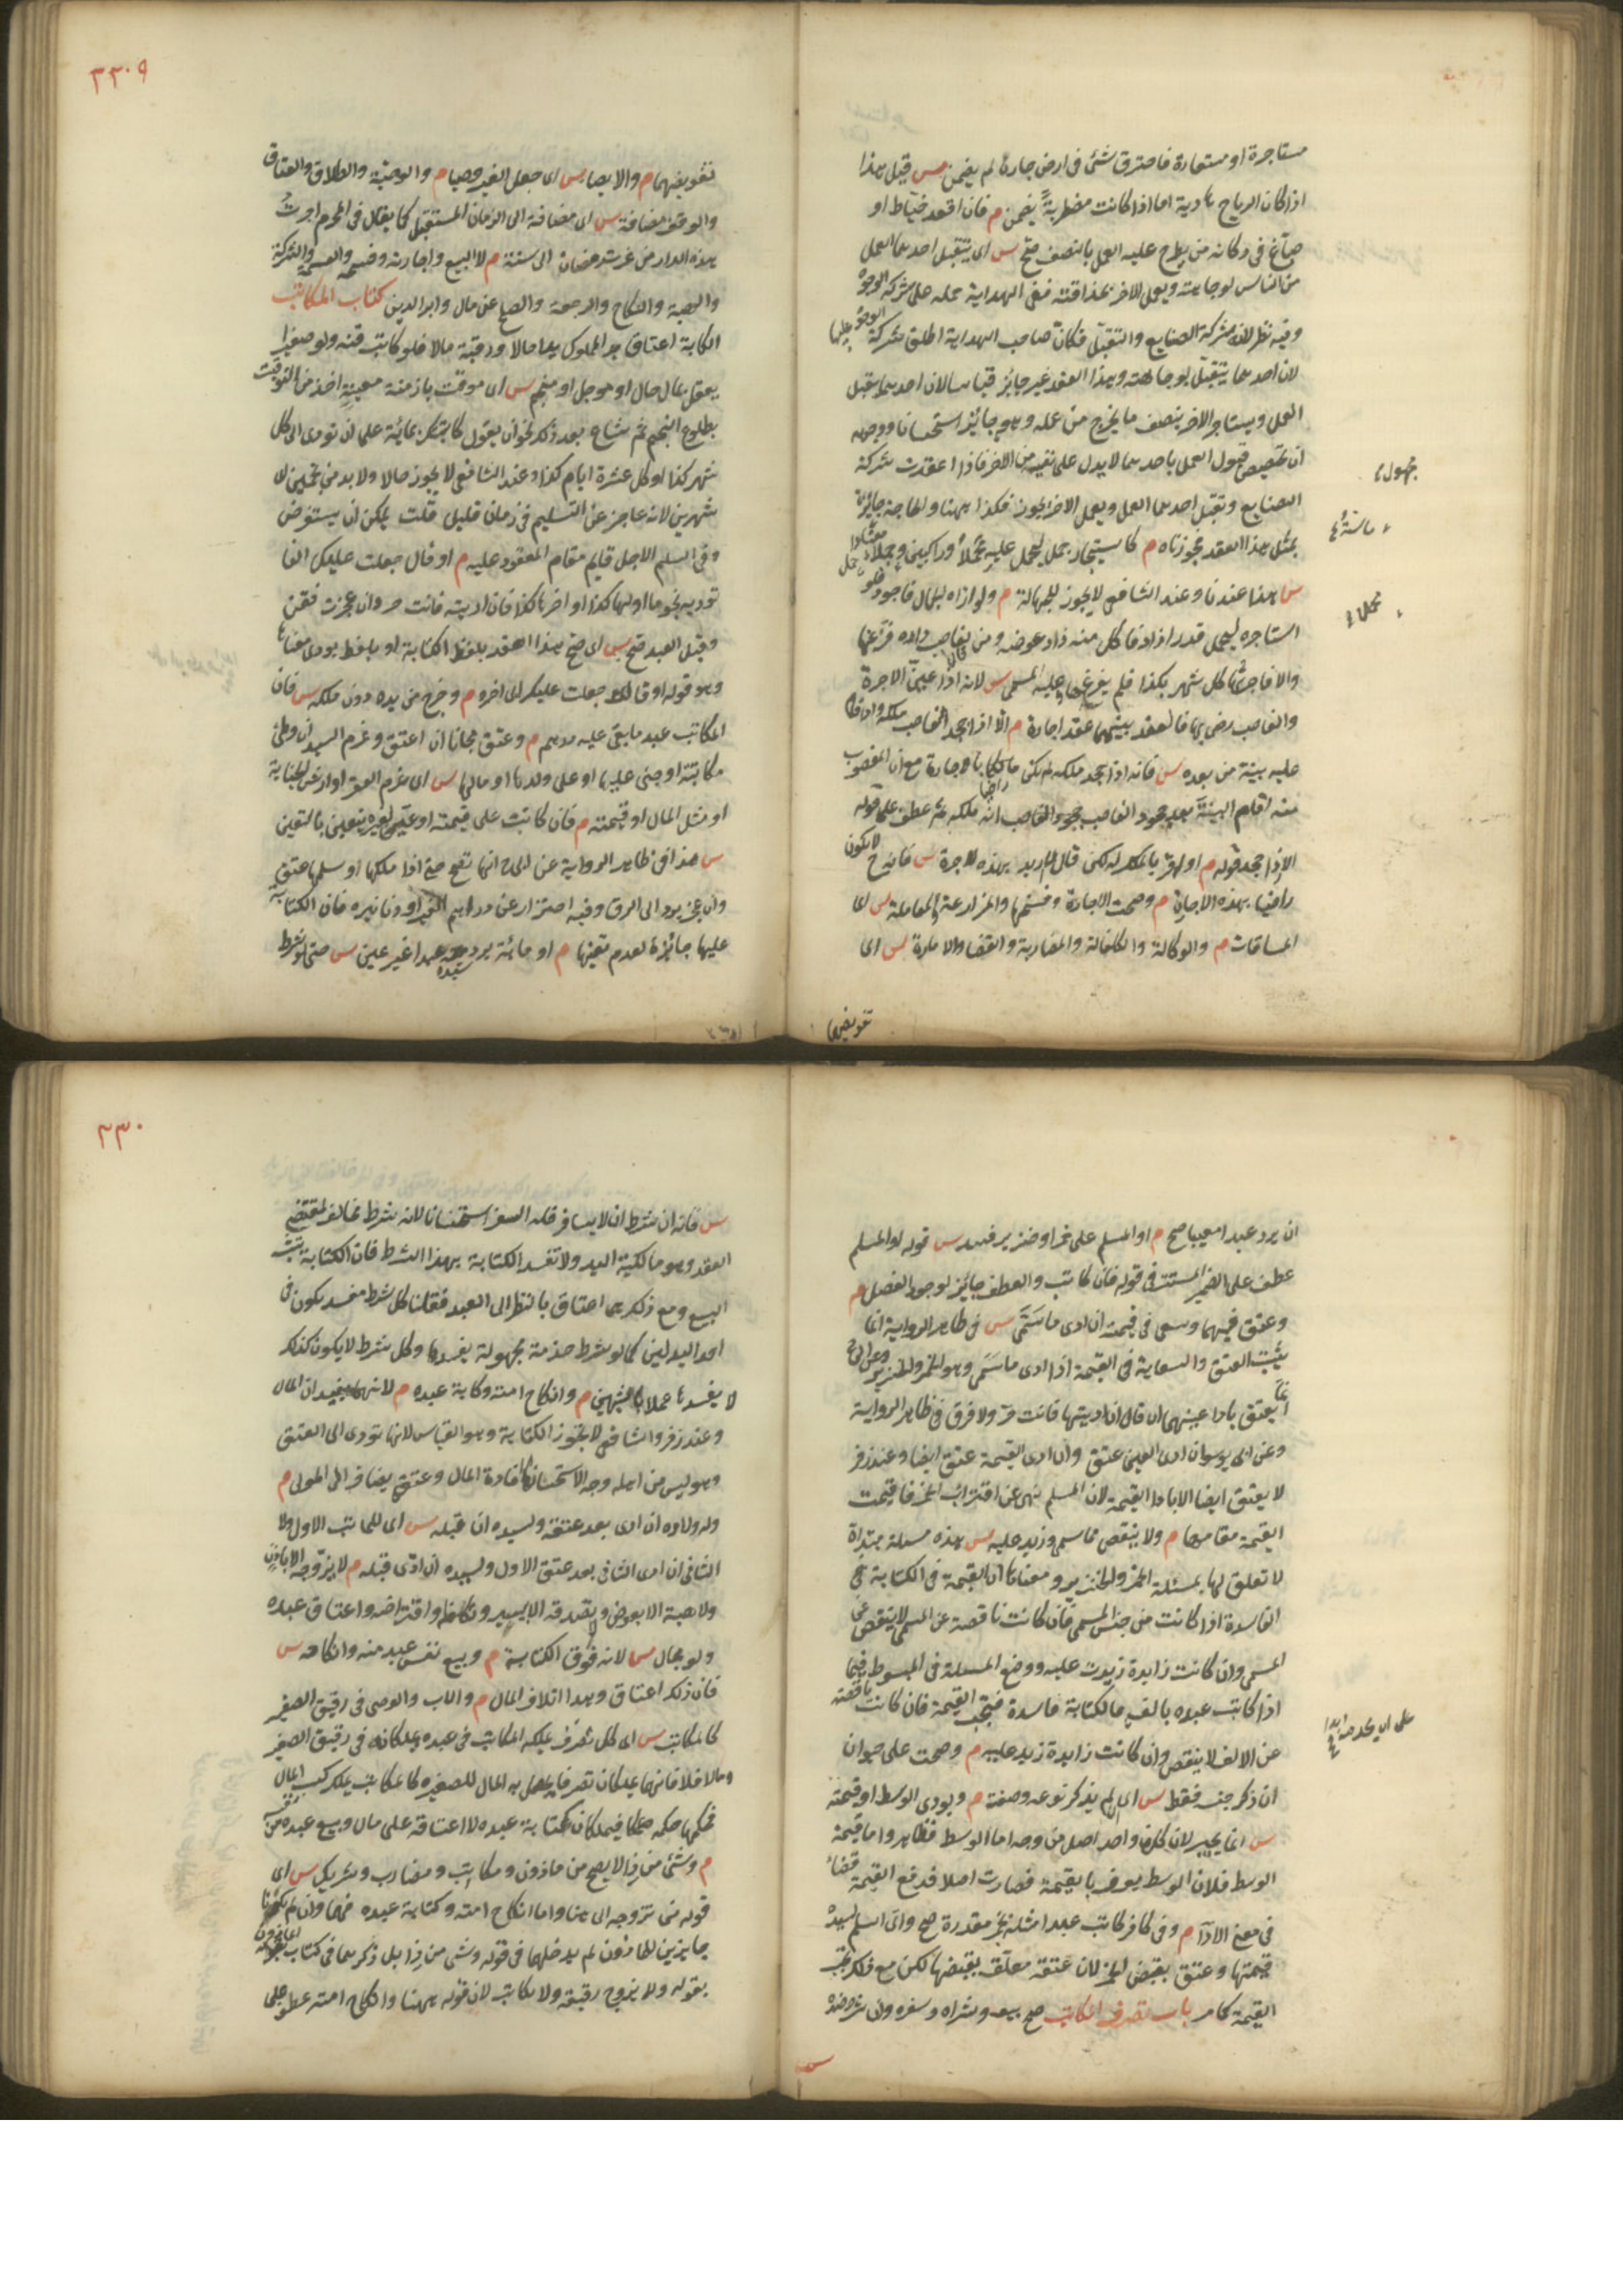 مستاجرة او مستعارة فاحترق شئ فى ارض جاره لم يضمن س قيل هذا
اذا كان الرياح هادية اما اذا كانت مضطربة يضمن م فان اقعد خياط او
صباغ فى دكانه من يطرح عليه العمل بالنصف صح س اى يتقبل احدهما العمل
من الناس لوجاهته ويعمل الاخر بحذاقته ففى الهداية حمله على شركة الوجوه
وفيه نظر لانه شركة الصنايع والتقبل فكان صاحب الهداية اطلق شركة الوجوه عليها
لان احدهما يتقبل بوجاهته وهذا العقد غير جايز قياسا لان احدهما يتقبل
العمل ويستاجر الاخر بنصف ما يخرج من عمله وهو جايز استحسانا ووجهه
ان تخصيص قبول العمل باحدهما لا يدل على نفيه من الاخر فاذا عقدت شركة
الصنايع وتقبل احدهما العمل ويعمل الاخر يجوز فكذا ههنا والحاجة جائزة
بمثل هذا العقد فجوزناه م كاستيجار جمل ليحمل عليه محملا وراكبين وحملا معتادا
س هذا عندنا وعند الشافعى لا يجوز للجهالة م ولو اراه الجمال فاجود هو
استاجره لحمل قدر زاد فاكل منه زاد عوضه ومن قال لغاصب داره فرغها
والا فاجرتها كل شهر بكذا فلم يفرغ فعليه المسمى س لانه اذا عين الاجرة
والغاصب رضى بها فانعقد بينهما عقد اجارة م الا اذا جحد الغاصب ملكه وان اقام
عليه بينة من بعده س فانه اذا جحد ملكه لم يكن مالكا باجارة مع ان المغصوب
منه اقام البينة بعد جحود الغاصب انه ملكه ثم عطف على قوله
الا اذا جحد قوله م او لم يقر بالملك له لكن قال لا اريد بهذه الاجرة س فانه ح لا يكون
راضيا بهذه الاجارة م وصحت الاجارة وفسخها والمزارعة والمعاملة س اى
المساقات م والوكالة والكفالة والمضاربة والقضا والامارة س اى
تفويضهما
٣٣٠٩
تفويضهما م والايصا س اى جعل الغير وصيا م والوصية والطلاق والعتاق
والوقف مضافة س اى مضافة الى الزمان المستقبل كما يقال فى المحرم اجرت
هذه الدار من غرة رمضان الى سنة م لا البيع واجازته وفسخه والقسمة والشركة
والهبة والنكاح والرجعة والصلح عن مال وابرا الدين كتاب المكاتب
الكتابة اعتاق المملوك يدا حالا ورقبة مالا فلو كاتب قنه ولو صغيرا
يعقل بمال حال او موجل او منجم س اى موقت بازمنة معينة اخذ من التوقيت
بطلوع النجم ثم شاع بعد ذلك نحو ان يقول كاتبتك بمائة على ان تودى الى كل
شهر كذا او كل عشرة ايام كذا وعند الشافعى لا يجوز حالا ولا بد من نجمين
شهرين لانه عاجز عن التسليم فى زمان قليل قلت يمكن ان يستقرض
وفى السلم الاجل قايم مقام المعقود عليه م او قال جعلت عليك الفا
توديه نجوما اولها كذا واخرها كذا فان اديته فانت حر وان عجزت فقن
وقبل العبد صح س اى صح هذا العقد بلفظ الكتابة او بلفظ يودى معناها
وهو قوله او قال جعلت عليك الى اخره م وخرج من يده دون ملكه س فان
المكاتب عبد ما بقى عليه درهم م وعتق مجانا ان اعتق وغرم السيد ان وطئ
مكاتبته او جنى عليها او على ولدها او مالها س اى غرم العقر او ارش الجناية
او مثل المال او قيمته م فان كاتب على قيمته او عين لغيره يتعين بالتعيين
س هذا فى ظاهر الرواية عن ابى ح انها تصح حتى اذا ملكها او سلمها عتق
وان عجز يرد الى الرق وفيه احتراز عن دراهم الغير او دنانيره فان الكتابة
عليها جائزة لعدم تعينها م او مائة يرد سيده عبدا غير عين س حتى لو شرط
ان يرد عبدا معينا صح م او المسلم على خمر او خنزير فسد س قوله او المسلم
عطف على الضمير المستتر فى قوله فان كاتب والعطف جايز لوجود الفصل م
وعتق فيهما وسعى فى قيمته ان ادى ما سمى س فى ظاهر الرواية انما
يثبت العتق والسعاية فى القيمة اذا ادى ما سمى وهو الخمر والخنزير وعن ابى ح
انما يعتق بادا عينهما ان قال ان اديتها فانت حر ولا فرق فى ظاهر الرواية
وعن ابى يوسف ان ادى العين عتق وان ادى القيمة عتق ايضا وعند زفر
لا يعتق ايضا الا بادا القيمة لان المسلم نهى عن اقتراب الخمر فاقيمت
القيمة مقامها م ولا ينقص مما سمى وزيد عليه س هذه مسئلة مبتداة
لا تعلق لها بمسئلة الخمر والخنزير ومعناها ان القيمة فى الكتابة
الفاسدة اذا كانت من جنس المسمى فان كانت ناقصة عن المسمى لا ينقص عن
المسمى وان كانت زايدة زيدت عليه ووضع المسئلة فى المبسوط فيما
اذا كاتب عبده بالف فالكتابة فاسدة فتجب القيمة فان كانت ناقصة
عن الالف لا ينقص وان كانت زايدة زيد عليه م وصحت على حيوان
ان ذكر جنسه فقط س اى لم يذكر نوعه وصفته م ويودى الوسط او قيمته
س انما يخير لان كل واحد اصل من وجه اما الوسط فظاهر واما قيمة
الوسط فلان الوسط يعرف بالقيمة فصارت اصلا فدفع القيمة قضاء
فى معنى الادا م وفى كافر كاتب عبدا مثله بخمر مقدرة صح واى اسلم لسيده
قيمتها وعتق بقبض الخمر لان عتقه معلق بقبضها لكن مع ذلك تجب
القيمة كما مر باب تصرف المكاتب صح بيعه وشراه وسفره وان شرط ضده
٣٣٠
س فانه ان شرط ان لا يسافر فله السفر استحسانا لانه شرط يخالف لمقتضى
العقد وهو مالكية اليد ولا تفسد الكتابة بهذا الشرط فان الكتابة تشبه
البيع ومع ذلك هى اعتاق بالنظر الى العبد فقلنا كل شرط مفسد يكون فى
احد البدلين كما لو شرط خدمة مجهولة يفسدها وكل شرط لا يكون كذلك
لا يفسدها عملا بالشبهين م وانكاح امته وكتابة عبده م لانهما يفيدان المال
وعند زفر والشافعى لا تجوز الكتابة وهو القياس لانها تودى الى العتق
وهو ليس من اهله وجه الاستحسان افادة المال وعتقه يضاف الى المولى م
وله ولاوه ان ادى بعد عتقه ولسيده ان قبله س اى للمكاتب الاول ولا
الثانى ان ادى الثانى بعد عتق الاول ولسيده ان ادى قبله م لا تزوجه الا باذن
ولا هبة الا بعوض وتصدقه الا بيسير وتكفله واقراضه واعتاق عبده
ولو بمال س لانه فوق الكتابة م وبيع نفس عبد منه وانكاحه س
فان ذلك اعتاق وهذا اتلاف المال م والاب والوصى فى رقيق الصغير
كالمكاتب س اى كل تصرف يملكه المكاتب فى عبده يملكانه فى رقيق الصغير
وما لا فلا فانهما يملكان تصرفا يحصل به المال للصغير كالمكاتب يملك كسب المال
فحكمهما حكمه فيملكان كتابة عبده لا اعتاقه على مال وبيع عبده من نفسه
م وشئ من ذا لا يصح من ماذون ومكاتب ومضارب وشريك س اى
قوله من تزوجه الى هنا واما انكاح امته وكتابة عبده فهما وان لم يكونا
جايزين للماذون لم يدخلهما فى قوله وشئ من ذا بل ذكرهما فى كتاب الماذون
بقوله ولا يزوج رقيقه ولا يكاتب لان قوله ههنا وانكاح امته عطف على